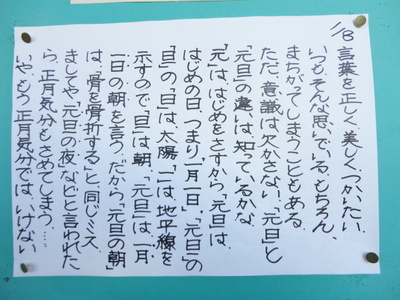 1/8 言葉を正しく、美しく、つかいたい。
いつも、そんな思いでいる。もちろん、
まちがってしまうこともある。
ただ、意識は欠かさない。「元日」と
「元旦」の違いは、知っているかな。
「元」は、はじめをさすから、「元日」は、
はじめの日、つまり一月一日。「元旦」の
「旦」の「日」は、太陽。「一」は、地平線を
示すので、「旦」は朝。「元旦」は、一月
一日の朝を言う。だから、「元旦の朝」
は、「骨を骨折する」と、同じミス。
ましてや、「元旦の夜」などと言われた
ら、正月気分もさめてしまう……。
いや、もう正月気分では、いけない